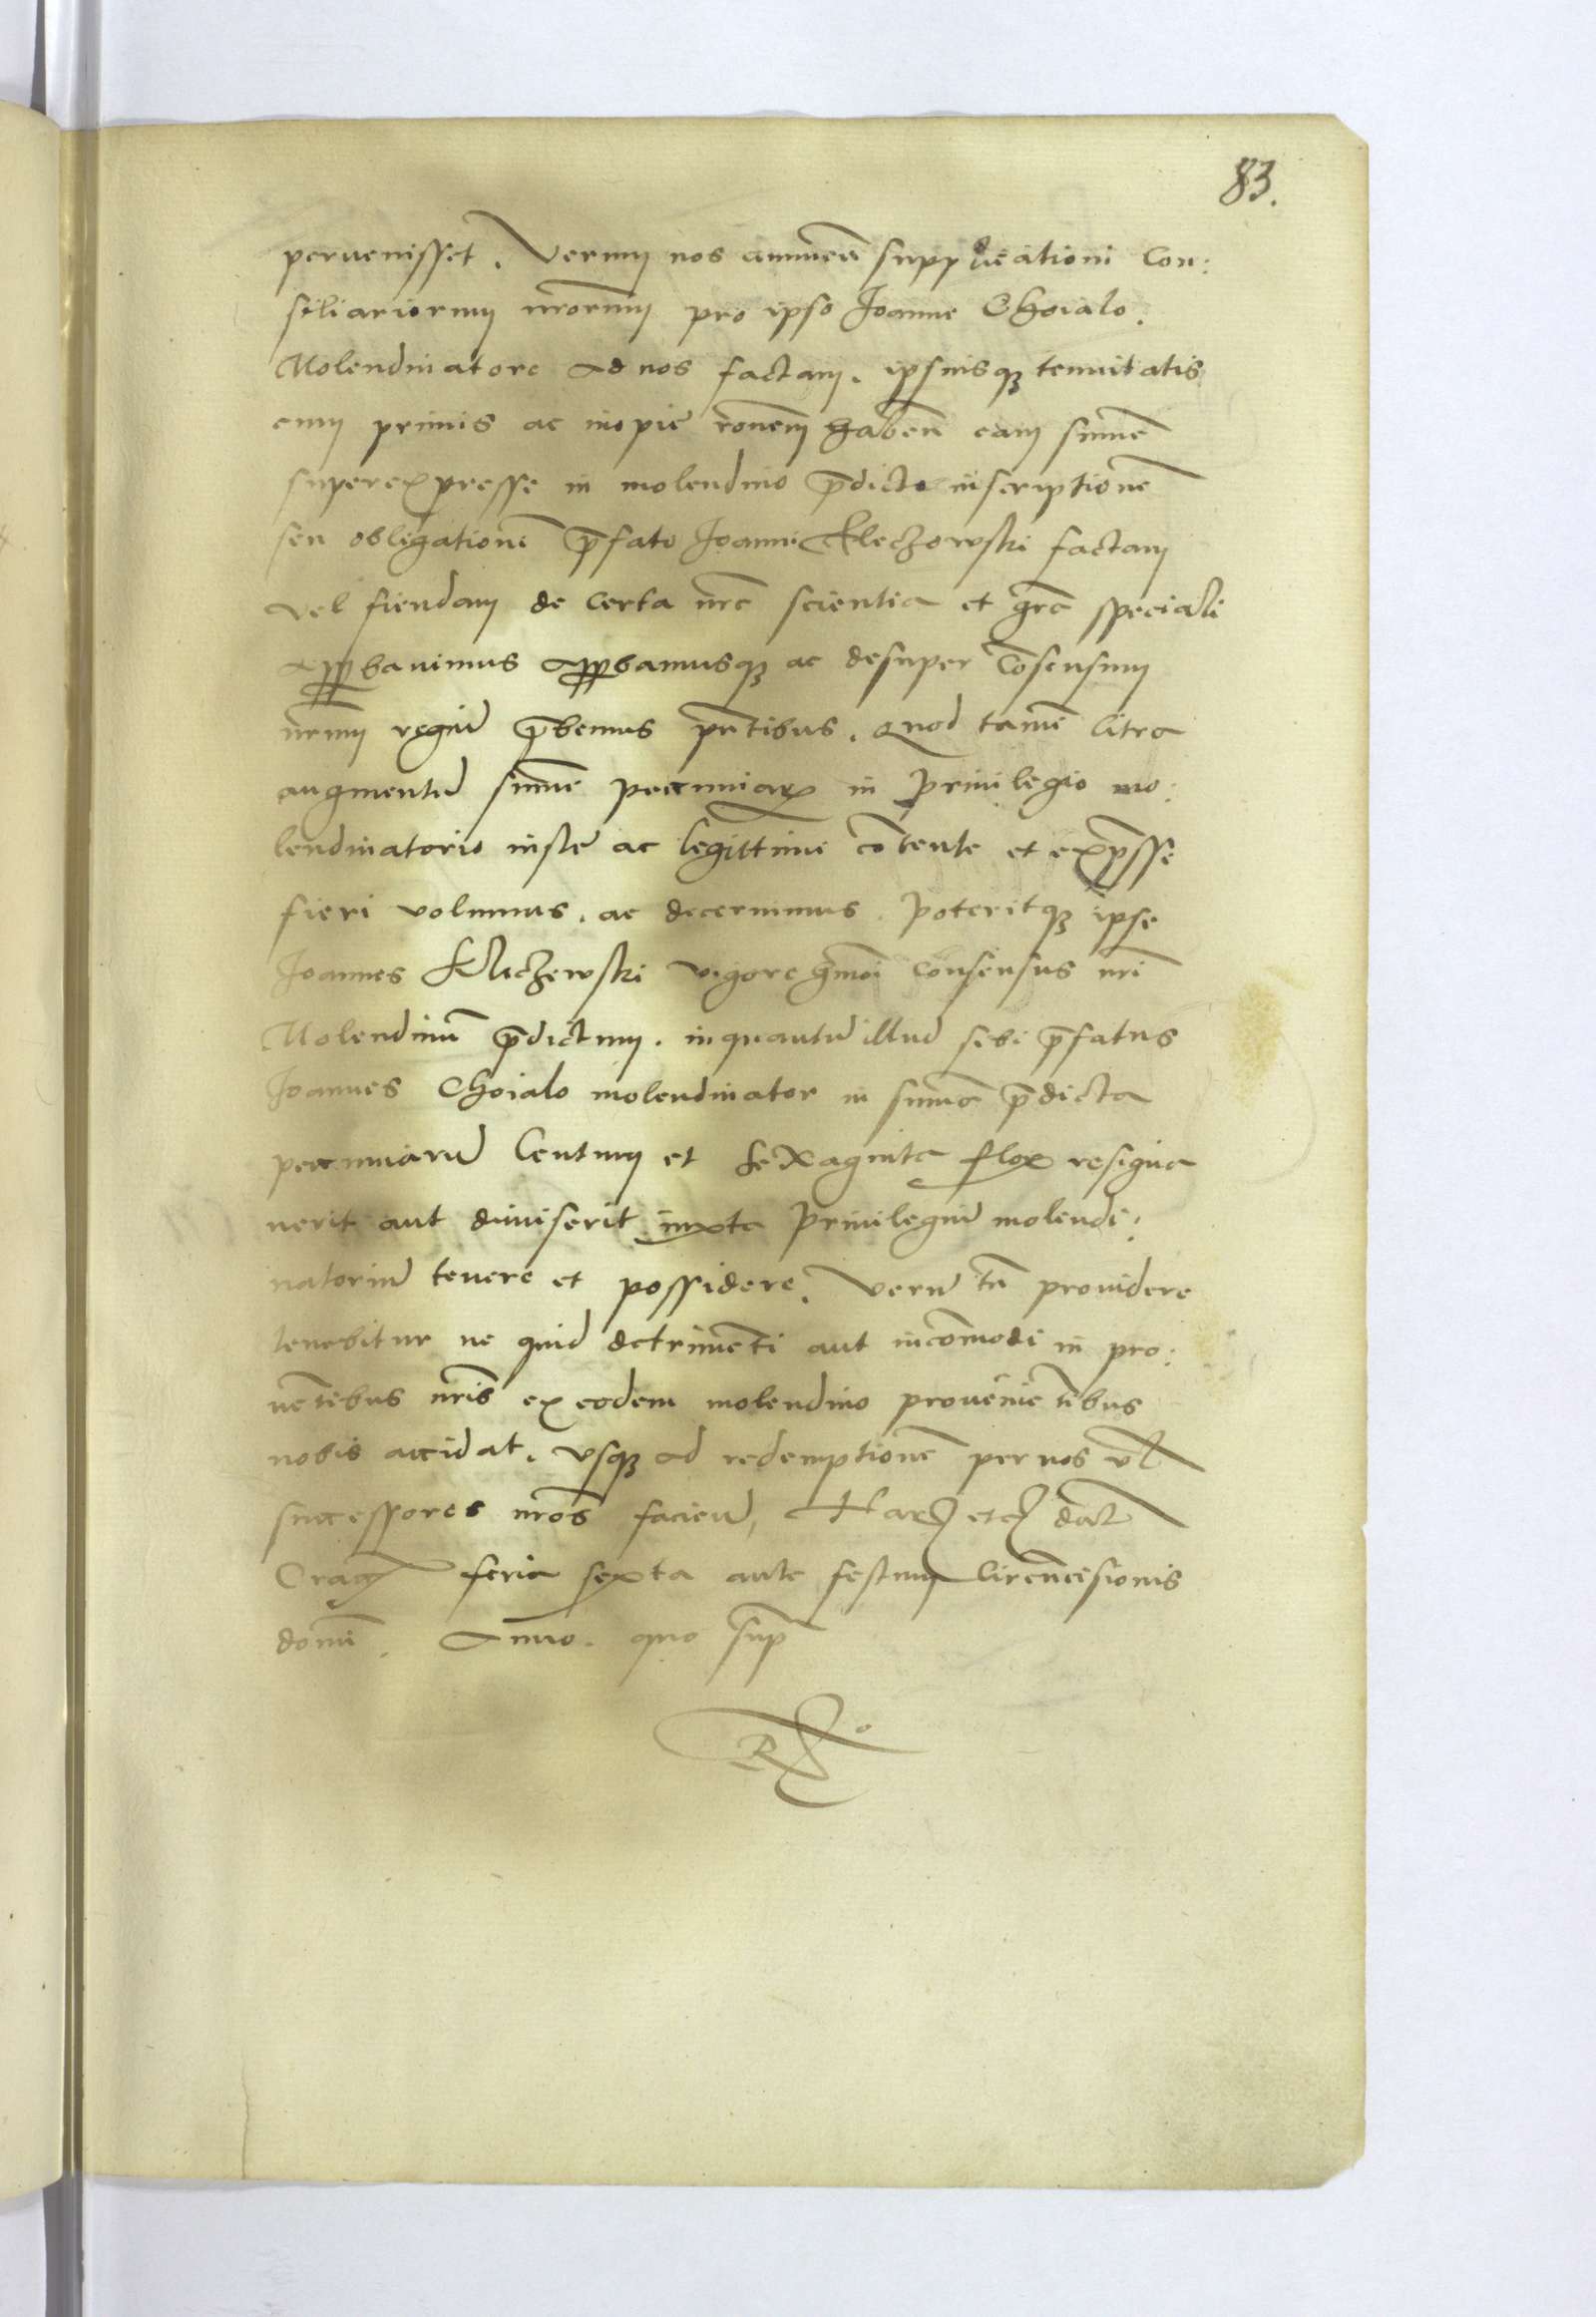 83.
pervenisset. Verum nos annuen̄ supplicationi Con:
siliariorum nrōrum pro ipso Joanne Choialo.
Molendinatore ad nos factam. ipsiusqꝫ tenuitatis
cum primis ac inopie rōnem haben̄ eam sum̄e
superexpresse in molendino p̄dicto inscriptionē
seu obligationē p̄fato Joanni Kleczowski factam
vel fiendam de certa nr̄a scientia et grā̄ speciali
approbavimus approbamusqꝫ ac desuper Cōsensum
nr̄um regiū p̄bemus pn̄tibus. Quod tamē citra
augmentū sum̄e pecuniarꝝ in Privilegio mo:
lendinatorio iuste ac legittime cōtente et exp̄sse
fieri volumus. ac decernimus. Poteritqꝫ ipse
Joannes Kliczewski vigore hm̄oi consensus nr̄i
Molendinū p̄dictum. inquantū illud sibi p̄fatus
Joannes Choialo molendinator in sum̄a p̄dicta
pecuniarū Centum et sexaginta flor̄ resigna
verit aut dimiserit iuxta Privilegiū molendi:
natoriū tenere et possidere. Verū tn̄ providere
tenebitur ne quid detrimenti aut incōmodi in pro:
vētibus nr̄is ex eodem molendino provenie tibus
nobis accidat. vsqꝫ ad redemptionē per nos vl̄
successores nr̄os facien̄, Har̄ etc̄ dat̄
Crac̄ feria sexta ante festum Circūcisionis
domī. Anno. quo sup̄